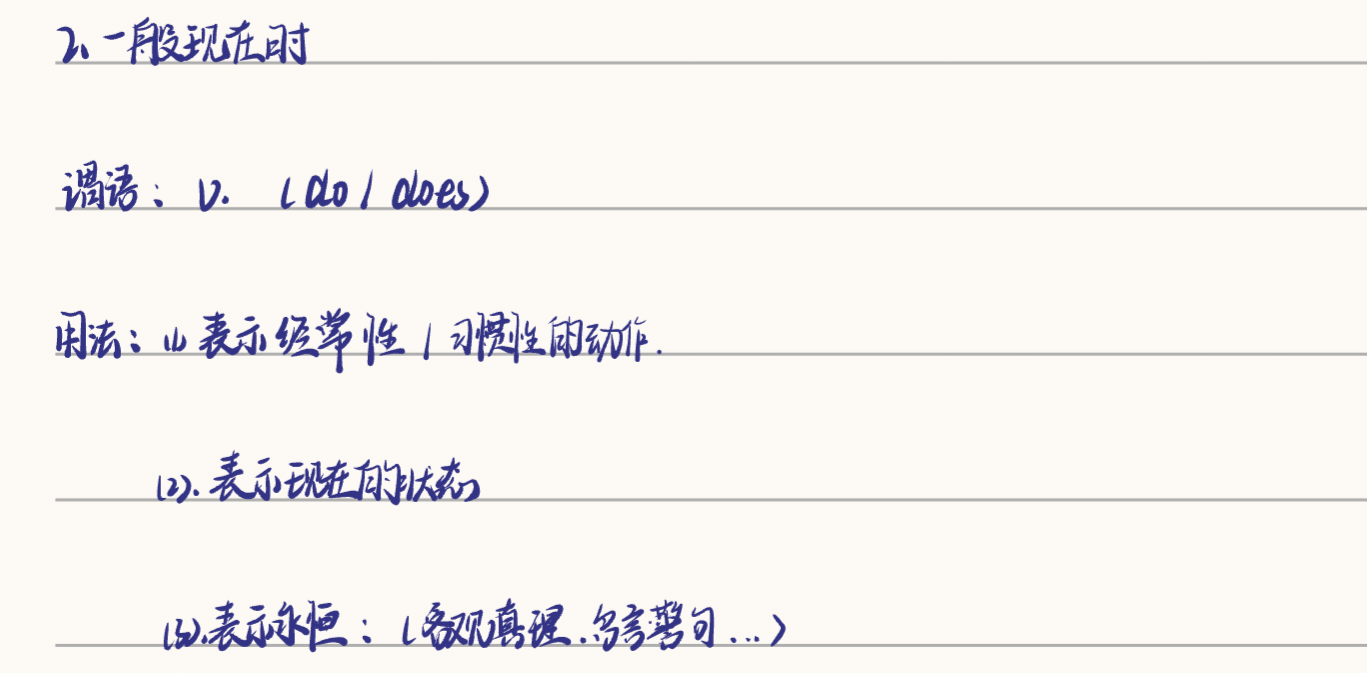 2、一般现在时
谓语：v. (do / does)
用法：(1) 表示经常性 / 习惯性的动作.
(2). 表示现在的状态
(3).表示永恒：(客观真理.名言警句...)